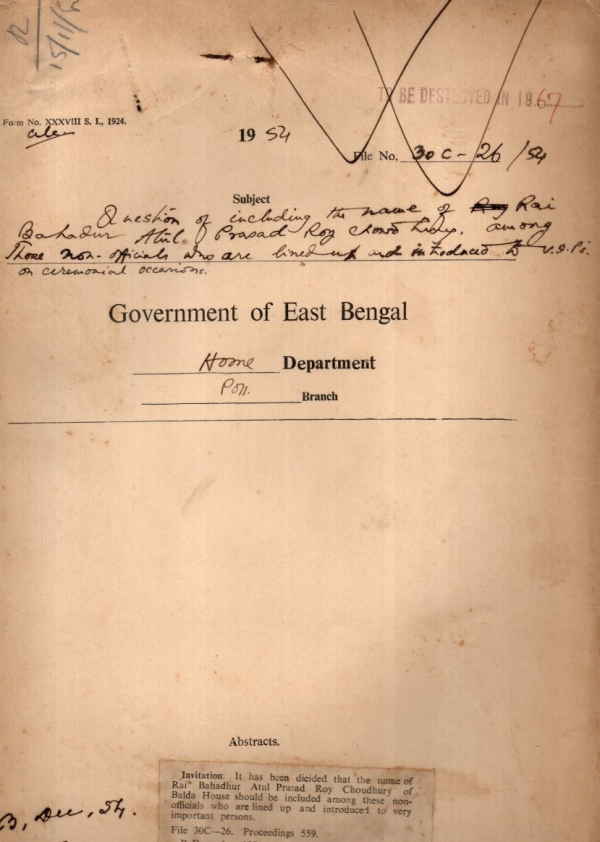 R
15/11/
TO BE DESTROYED IN 1967
Form No. XXXVIII S. I., 1924.
19 54
File No. 30C-26/54
Subject
Question of including the name of Roy Rai
Bahadur Atul Prasad Roy Chowdhury among
those non-officials who are lined up and introduced to V.I.Ps.
on ceremonial occasions.
Government of East Bengal
Home Department
Poll. Branch
Abstracts.
Invitation: It has been dicided that the name of
Rai" Bahadhur Atul Prasad Roy Choudhury of
Balda House should be included among these non-
officials who are lined up and introduced to very
important persons.
File 30C—26. Proceedings 559.
B, Dec, 54.